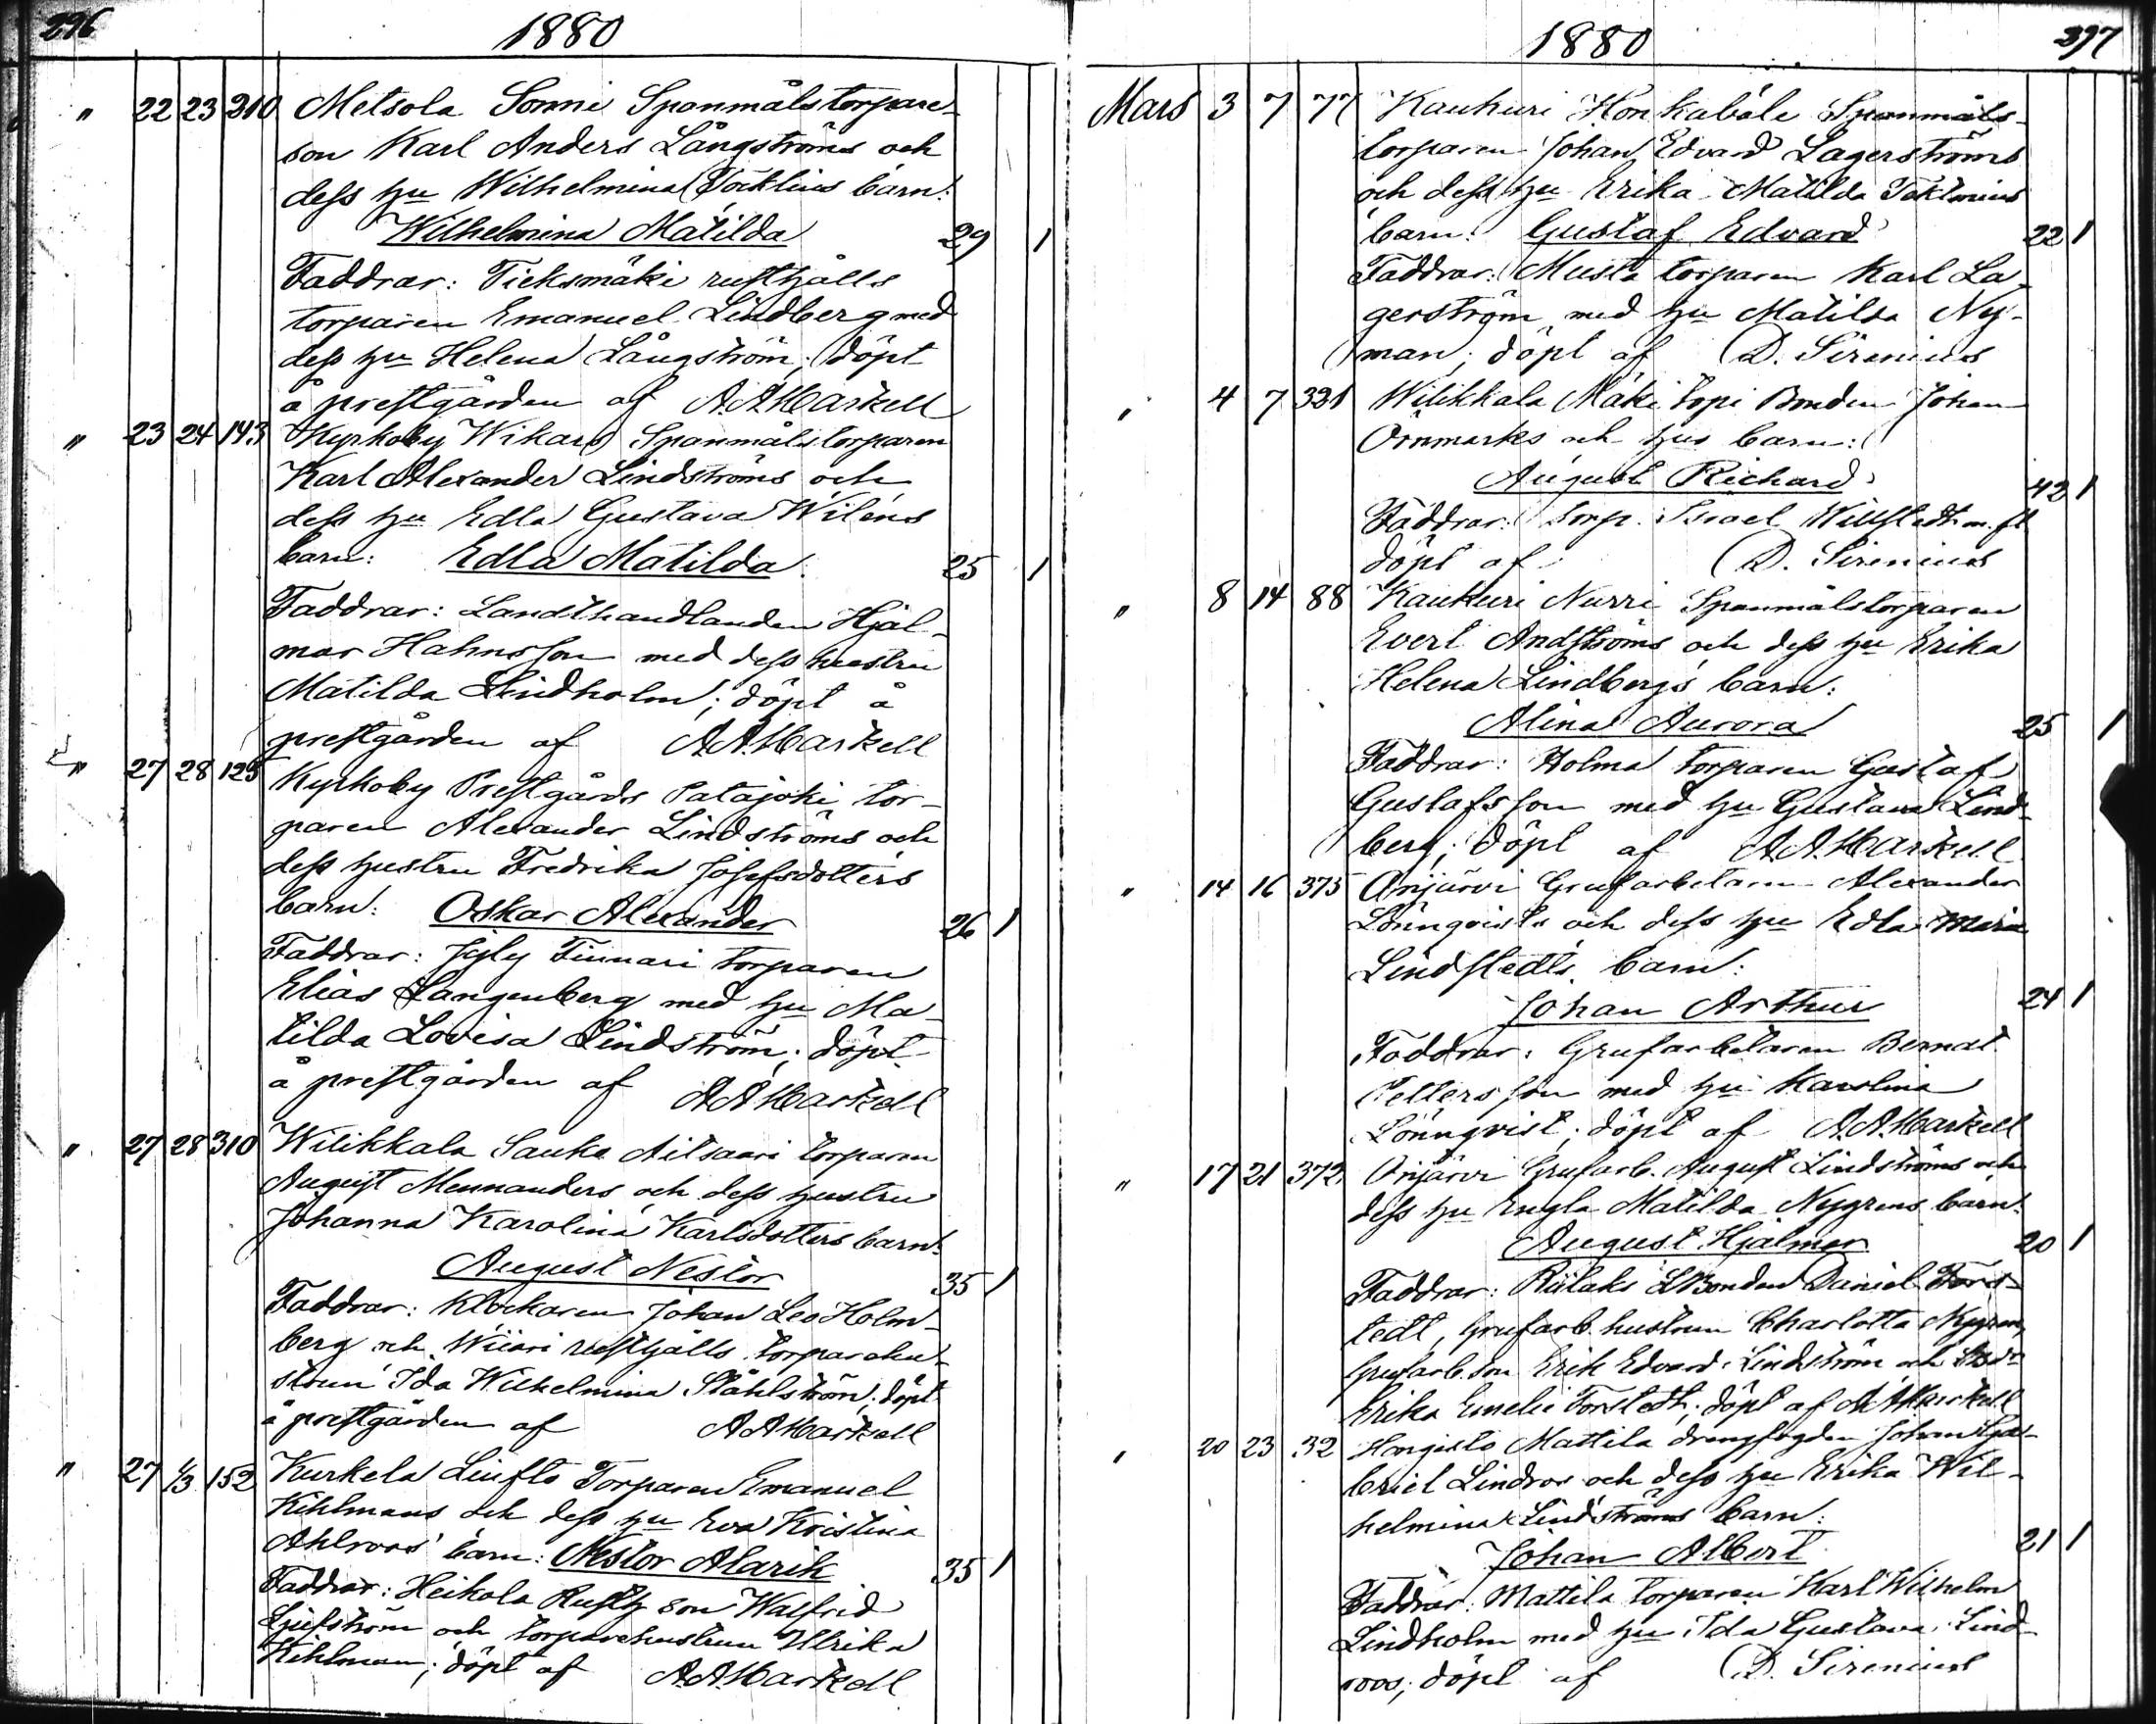 296
1880
" 22 23 310 Metsola Sonni Spanmålstorpare-
son Karl Anders Långströms och
dess hu Wilhelmina Töcklins barn:
Wilhelmina Matilda 29 1
Faddrar: Tieksmäki rusthålls
torparen Emanuel Lindberg med
dess hu Helena Långström; döpt
å prestgården af A. A. Markell
" 23 24 143 Kyrkoby Wikars Spanmålstorparen
Karl Alexander Lindströms och
dess hu Edla Gustava Wiléns
barn: Edla Matilda. 25 1
Faddrar: Landthandlanden Hjal-
mar Hahnsson med dess hustru
Matilda Lindholm; döpt å
prestgården af A. A. Markell
" 27 28 125 Kyrkoby Prestgårds Patajoki tor-
paren Alexander Lindströms och
dess hustru Fredrika Josefsdotters
barn: Oskar Alexander 26 1
Faddrar: Jyly Finnari torparen
Elias Langenberg med hu Ma-
tilda Lovisa Lindström; döpt
å prestgården af A. A. Markell
" 27 28 310 Wilikkala Sauka Aitsaari torparen
August Mennanders och dess hustru
Johanna Karolina Karlsdotters barn:
August Nestor 35 1
Faddrar: Klockaren Johan Leo Holm-
berg och Wiiari rusthålls torparehu-
strun Ida Wilhelmina Ståhlström; döpt
å prestgården af A. A. Markell
" 27 1/3 152 Kurkela Liufto Torparen Emanuel
Kihlmans och dess hu Eva Kristina
Ahlroos' barn: Nestor Alarik 35 1
Faddrar: Heikola Rusth son Walfrid
Ljufström och torparehustrun Ulrika
Kihlman; döpt af A. A. Markell
1880
297
Mars 3 7 77 Kaukuri Honkabäle Spanmåls-
torparen Johan Edvard Lagerströms
och dess hu Erika Matilda
barn: Gustaf Edvard 22 1
Faddrar: Musta torparen Karl La-
gerström med hu Matilda Ny-
man; döpt af D. Sirenius
" 4 7 321 Wilikkala Mäki Topi Bonden Johan
Örnmarks och hus barn:
August Richard 42 1
Faddrar: torp. Israel Willstedt m. fl
döpt af D. Sirenius
" 8 14 88 Kaukuri Nurri Spanmålstorparen
Evert Andströms och dess hu Erika
Helena Lindbergs barn:
Alina Aurora 25 1
Faddrar: Holma torparen Gustaf
Gustafsson med hu Gustava Lind-
berg; döpt af A. A. Markell
" 14 16 375 Orijärvi Grufarbetaren Alexander
Lönnqvists och dess hu Edla Maria
Lindstedts barn:
Johan Arthur 24 1
Faddrar: Grufarbetaren Bernat
Pettersson med hu Karolina
Lönnqvist; döpt af A. A. Markell
" 17 21 372 Orijärvi Grufarb. August Lindströms och
dess hu Engla Matilda Nygrens barn:
August Hjalmar 20 1
Faddrar: Riilaks Bonden Daniel Fors-
tedt, grufarb. hustrun Charlotta Nygren,
grufarb. son Erik Edvard Lindström och
Erika Emelie Forstedt; döpt af A. A. Markell
" 20 23 32 Hongisto Mattila drengfogden Johan Ga-
briel Lindros och dess hu Erika Wil-
helmina Lindströms barn:
Johan Albert 21 1
Faddrar: Mattila torparen Karl Wilhelm
Lindholm med hu Ida Gustava Lind-
roos; döpt af D. Sirenius